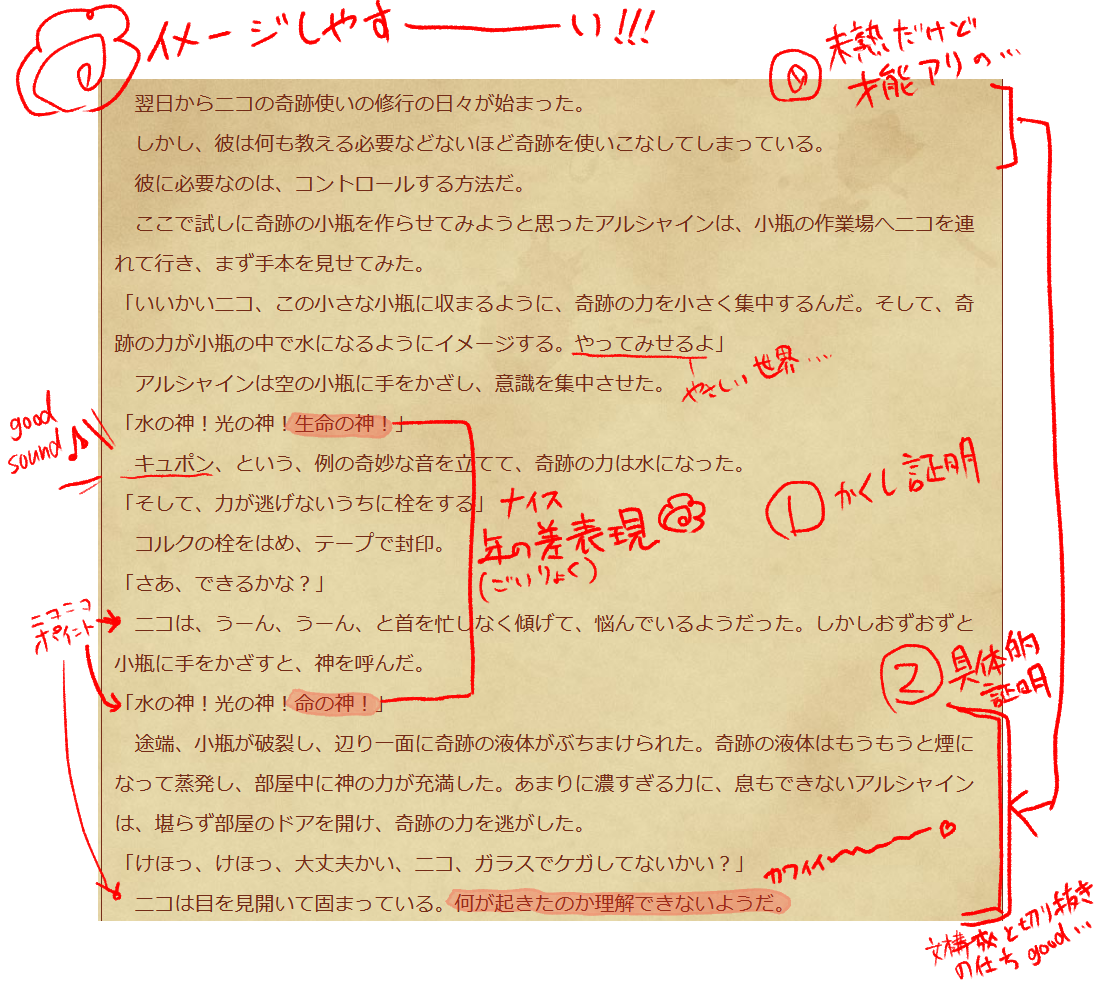 イメージしやすーーい!!!
⓪ 未熟だけど
才能アリの…
翌日からニコの奇跡使いの修行の日々が始まった。
しかし、彼は何も教える必要などないほど奇跡を使いこなしてしまっている。
彼に必要なのは、コントロールする方法だ。
ここで試しに奇跡の小瓶を作らせてみようと思ったアルシャインは、小瓶の作業場へニコを連
れて行き、まず手本を見せてみた。
「いいかいニコ、この小さな小瓶に収まるように、奇跡の力を小さく集中するんだ。そして、奇
跡の力が小瓶の中で水になるようにイメージする。やってみせるよ」
やさしい世界…
アルシャインは空の小瓶に手をかざし、意識を集中させた。
「水の神！光の神！生命の神！」
good
sound♪
キュポン、という、例の奇妙な音を立てて、奇跡の力は水になった。
① かくし証明
「そして、力が逃げないうちに栓をする」
ナイス
年の差表現
(ごいりょく)
コルクの栓をはめ、テープで封印。
「さあ、できるかな？」
ニコニコ
ポイント
ニコは、うーん、うーん、と首を忙しなく傾げて、悩んでいるようだった。しかしおずおずと
小瓶に手をかざすと、神を呼んだ。
② 具体的
証明
「水の神！光の神！命の神！」
途端、小瓶が破裂し、辺り一面に奇跡の液体がぶちまけられた。奇跡の液体はもうもうと煙に
なって蒸発し、部屋中に神の力が充満した。あまりに濃すぎる力に、息もできないアルシャイン
は、堪らず部屋のドアを開け、奇跡の力を逃がした。
「けほっ、けほっ、大丈夫かい、ニコ、ガラスでケガしてないかい？」
カワイイ〜♡
ニコは目を見開いて固まっている。何が起きたのか理解できないようだ。
文構成と切り抜き
の仕方 good…